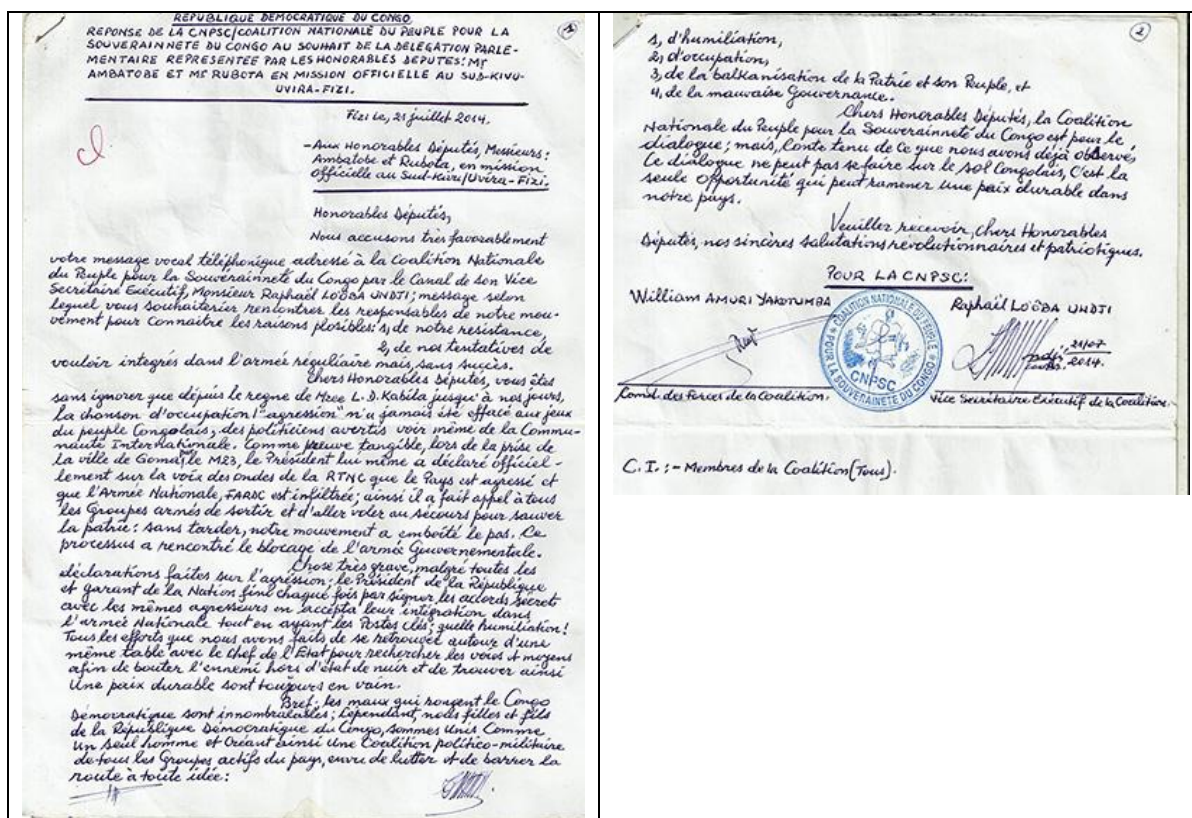 REPUBLIQUE DEMOCRATIQUE DU CONGO
REPONSE DE LA CNPSC/COALITION NATIONALE DU PEUPLE POUR LA
SOUVERAINNETE DU CONGO AU SOUHAIT DE LA DELEGATION PARLE-
MENTAIRE REPRESENTEE PAR LES HONORABLES DEPUTES: MR
AMBATOBE ET MR RUBOTA EN MISSION OFFICIELLE AU SUD-KIVU-
UVIRA-FIZI.
1
Fizi le, 21 juillet 2014.
-Aux Honorables Députés, Messieurs:
Ambatobe et Rubota, en mission
officielle au Sud-Kivu/Uvira-Fizi.
Honorables Députés,
Nous accusons très favorablement
votre message vocal téléphonique adressé à la Coalition Nationale
du Peuple pour la Souverainneté du Congo par le Canal de son Vice
Secrétaire Exécutif, Monsieur Raphaël LOOBA UNDJI; message selon
lequel vous souhaiterier rencontrer les responsables de notre mou-
vement pour connaitre les raisons plosibles: 1, de notre resistance,
2, de nos tentatives de
vouloir integrés dans l'armée réguliaire mais, sans succès.
Chers Honorables Députés, vous êtes
sans ignorer que dépuis le regne de Mzee L.D. Kabila jusqu'à nos jours,
la chonson d'occupation l'"agression" n'a jamais été effacé aux jeux
du peuple Congolais, des politiciens avertis voir même de la Commu-
nauté Internationale. Comme preuve tangible, lors de la prise de
la ville de Goma, le M23, le Président lui même a déclaré officiel-
lement sur la voix des ondes de la RTNC que le Pays est agressé et
que l'Armée Nationale, FARDC est infiltrée; ainsi il a fait appel à tous
les Groupes armés de sortir et d'aller voler au sécours pour sauver
la patrie: sans tarder, notre mouvement a emboîté le pas. Ce
processus a rencontré le blocage de l'armée Gouvernementale.
Chose très grave, malgré toutes les
déclarations faites sur l'agréssion; le Président de la République
et garant de la Nation fini chaque fois par signer les accords secrets
avec les mêmes agresseurs en accepta leur intégration dans
l'armée Nationale tout en ayant les Postes clés; quelle humiliation!
Tous les efforts que nous avons faits de se retrouver autour d'une
même table avec le Chef de l'Etat pour rechercher les voies et moyens
afin de bouter l'ennemi hors d'état de nuir et de trouver ainsi
Une paix durable sont toujours en vain.
Bref: les maux qui rongent le Congo
Démocratique sont innombralables; Cependant, nous filles et fils
de la République Démocratique du Congo, sommes Unis Comme
Un seul homme et Créant ainsi Une Coalition politico-militaire
de tous les Groupes actifs du pays, envu de lutter et de barrer la
route à toute idée:
2
1, d'humiliation,
2, d'occupation,
3, de la balkanisation de la Patrie et son Peuple, et
4, de la mauvaise Gouvernance.
Chers Honorables Députés, la Coalition
Nationale du Peuple pour la Souverainneté du Congo est pour le
dialogue; mais, Conte tenu de Ce que nous avons déjà observés
Ce dialogue ne peut pas se faire sur le sol Congolais, C'est la
seule Opportunité qui peut ramener Une paix durable dans
notre pays.
Veuillez récevoir, Chers Honorables
Députés, nos sincères salutations révolutionnaires et patriotiques.
POUR LA CNPSC:
William AMURI YAKOTUMBA
Raphaël LOOBA UNDJI
COALITION NATIONALE DU PEUPLE
POUR LA SOUVERAINETE DU CONGO
CNPSC
21/07
2014.
Comd. des Forces de la Coalition.
Vice Secrétaire Exécutif de la Coalition.
C.I.: - Membres de la Coalition (Tous).